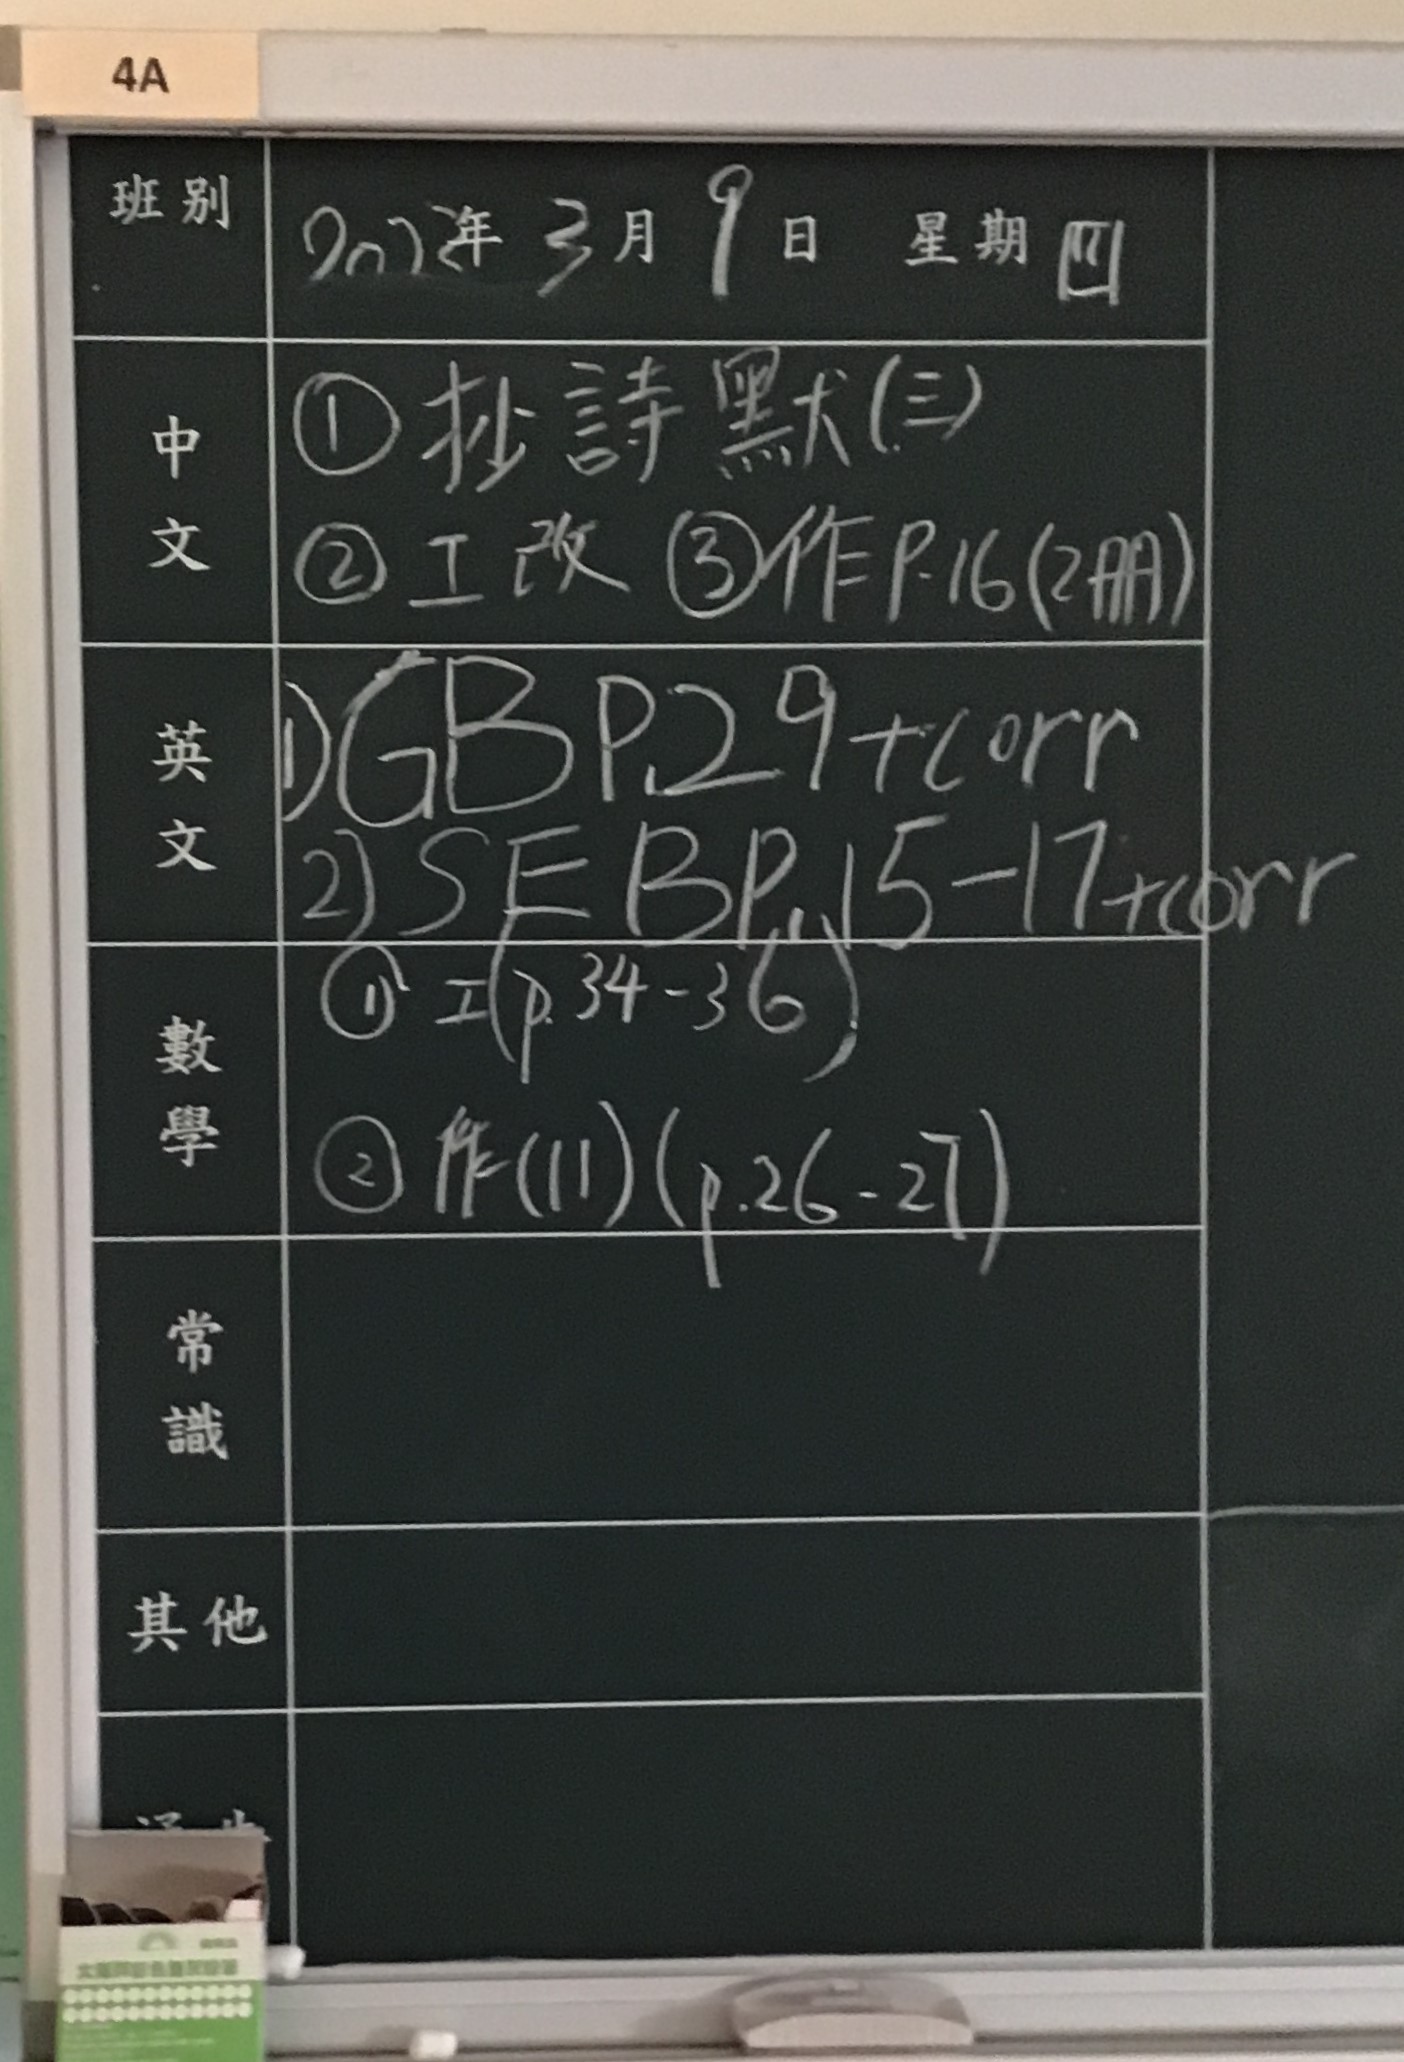 4A
班別 2023年 3月 9日 星期四
中文
①抄詩默(三)
②工改 ③作P.16(2冊)
英文
1)GB P.29+corr
2)SEB P.15-17+corr
數學
① 工(p.34-36)
② 作(11)(p.26-27)
常識
其他